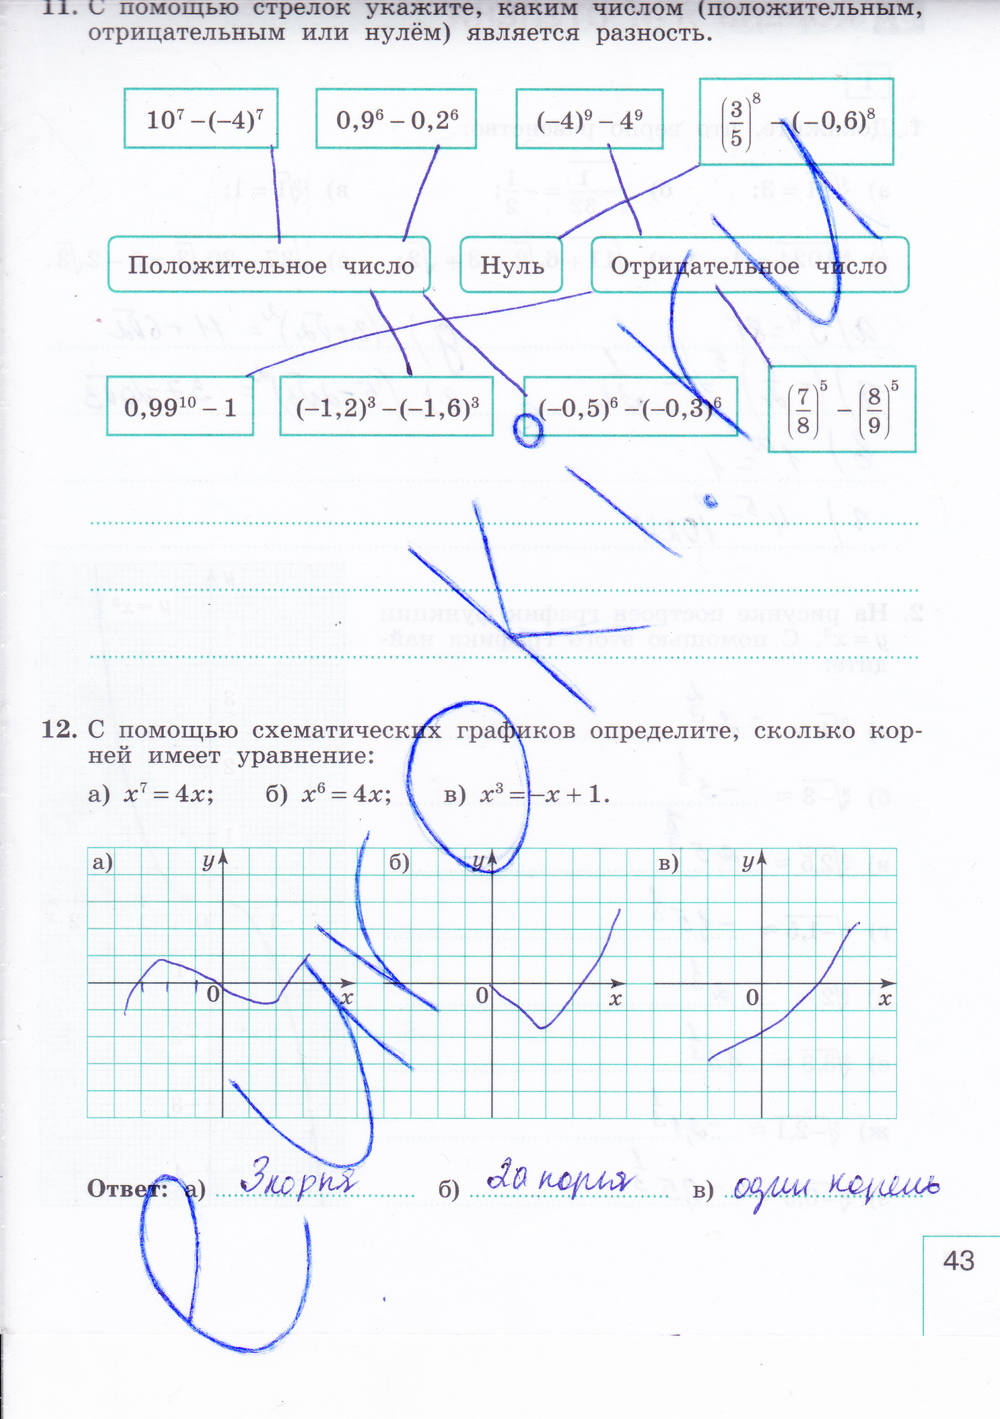 11. С помощью стрелок укажите, каким числом (положительным,
отрицательным или нулём) является разность.
10⁷ −(−4)⁷
0,9⁶ − 0,2⁶
(−4)⁹ − 4⁹
(3/5)⁸ −(−0,6)⁸
Положительное число
Нуль
Отрицательное число
0,99¹⁰ − 1
(−1,2)³ −(−1,6)³
(−0,5)⁶ −(−0,3)⁶
(7/8)⁵ − (8/9)⁵
12. С помощью схематических графиков определите, сколько кор-
ней имеет уравнение:
а) x⁷ = 4x; б) x⁶ = 4x; в) x³ = −x + 1.
а) y 0 x
б) y 0 x
в) y 0 x
Ответ: а) 3 корня б) 2а корня в) один корень
43